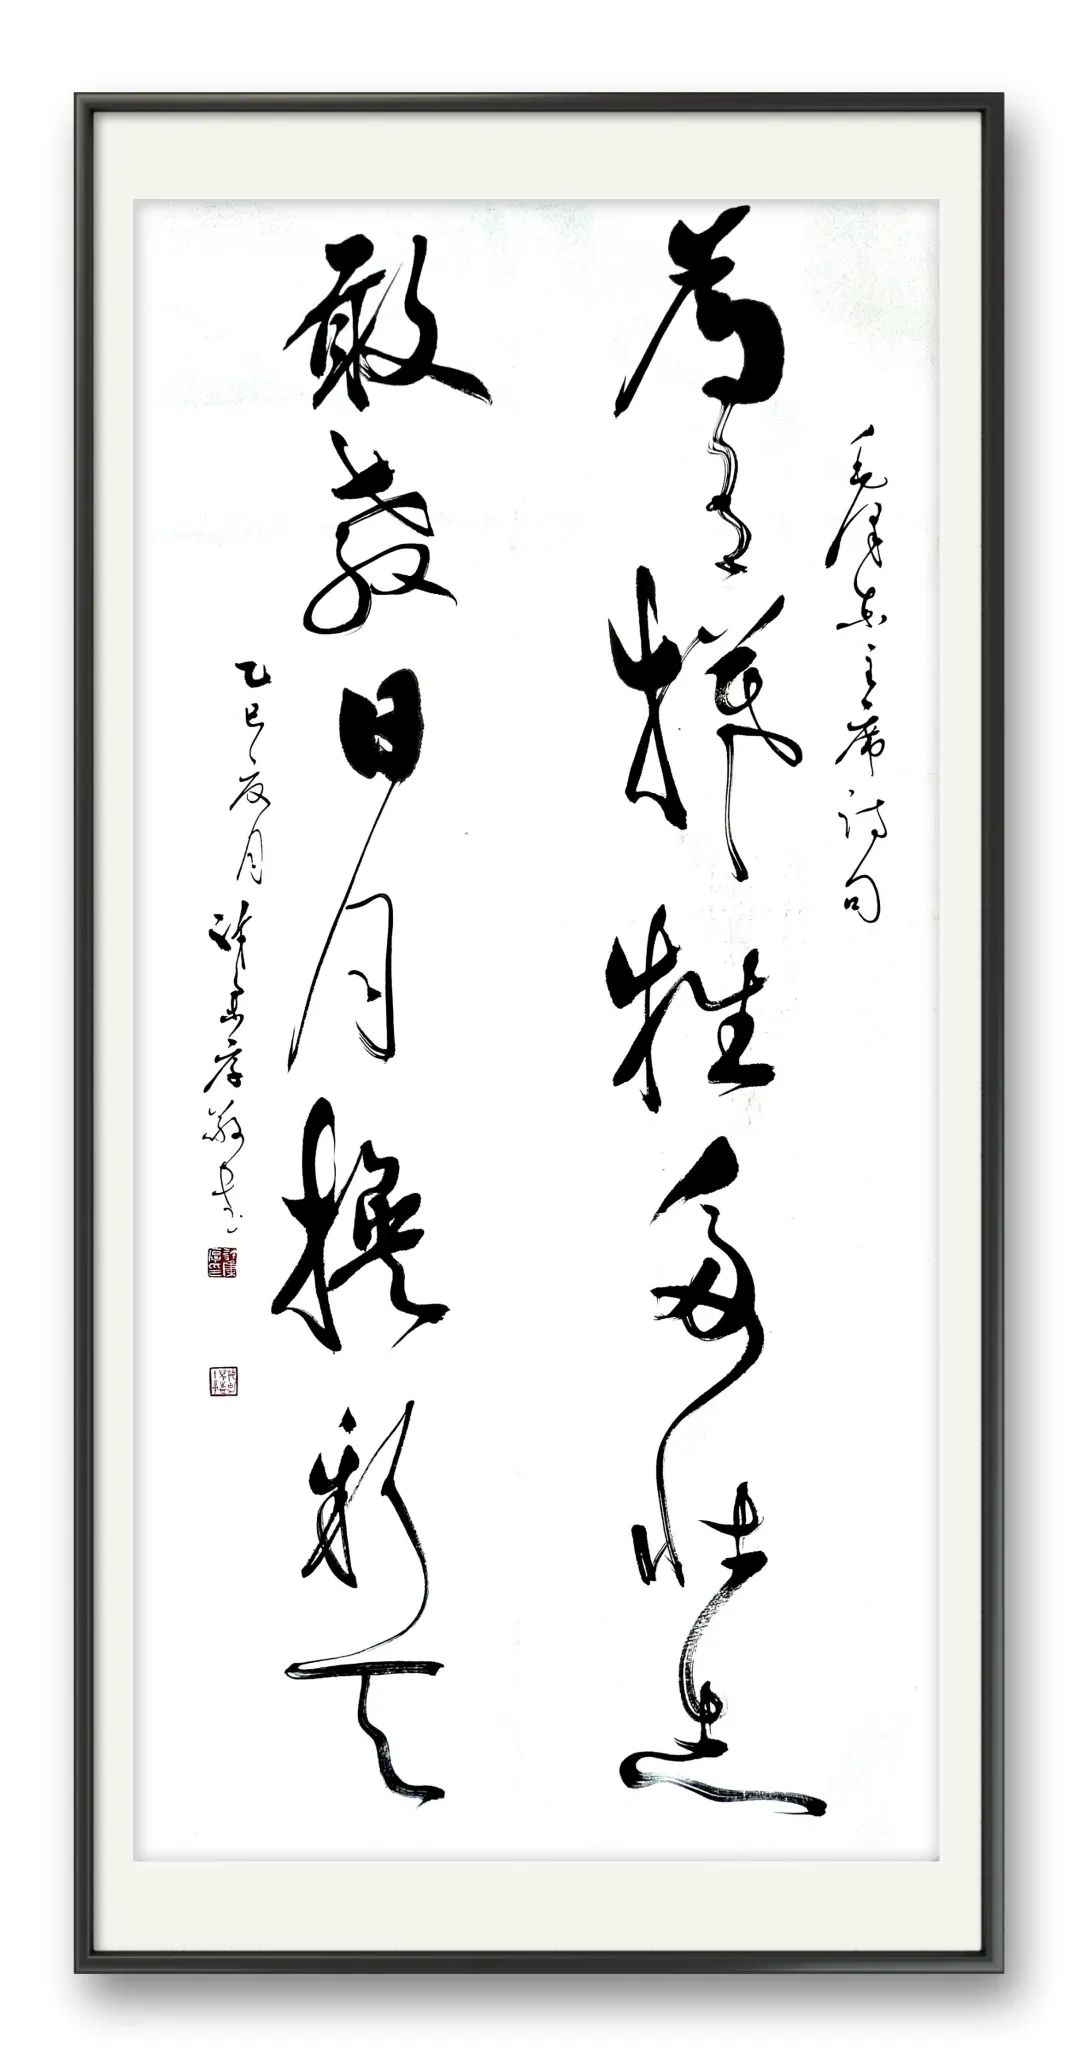 毛泽东主席诗句
为有牺牲多壮志
敢教日月换新天
乙巳夏月 许 敬书